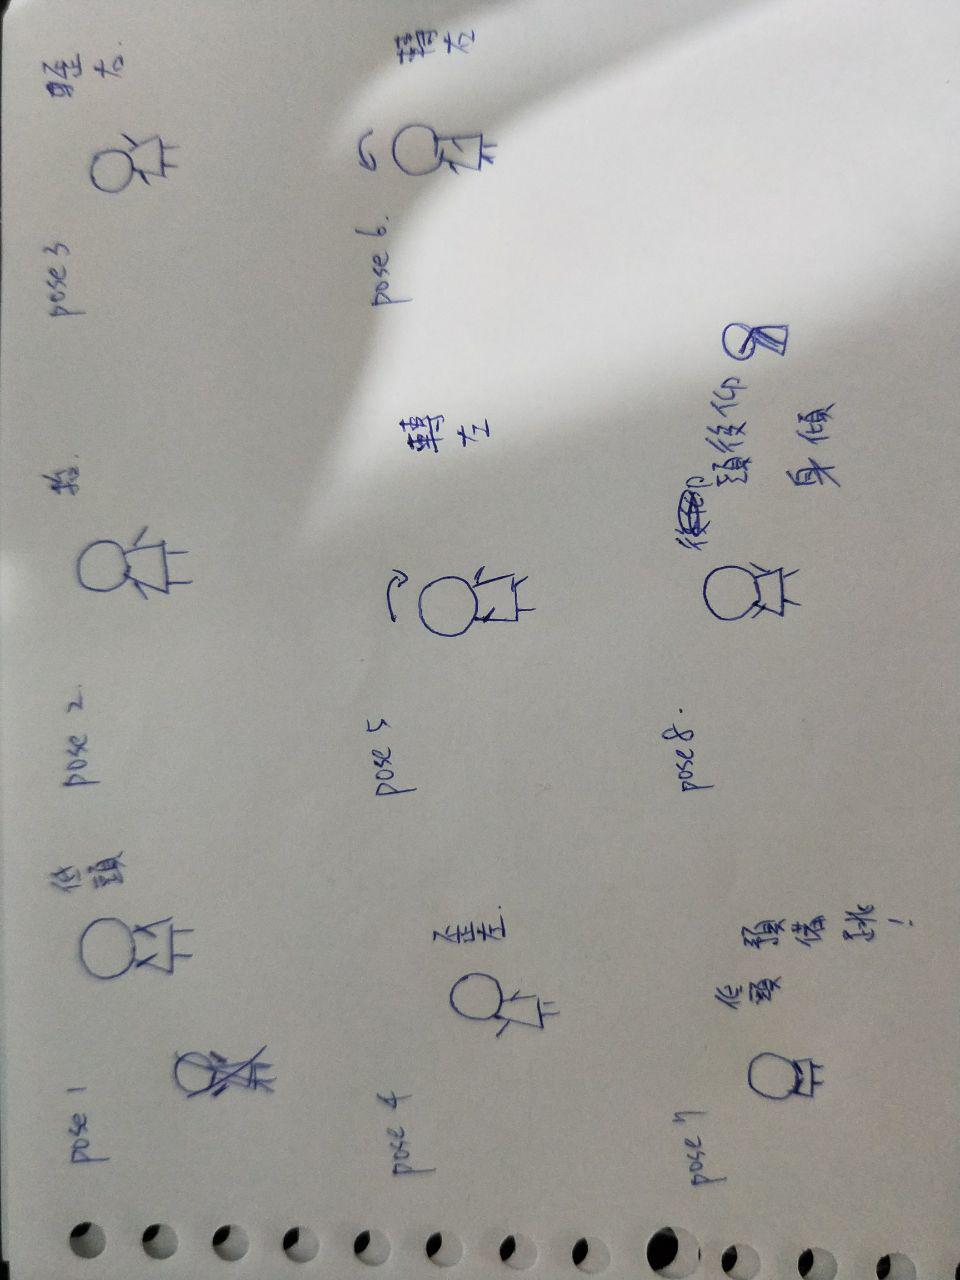 pose 1
低頭
pose 2.
抬.
pose 3
歪右.
pose 4
歪左.
pose 5
轉左
pose 6.
轉左
pose 7
低頭
預備跳!
pose 8.
頭後仰
身傾